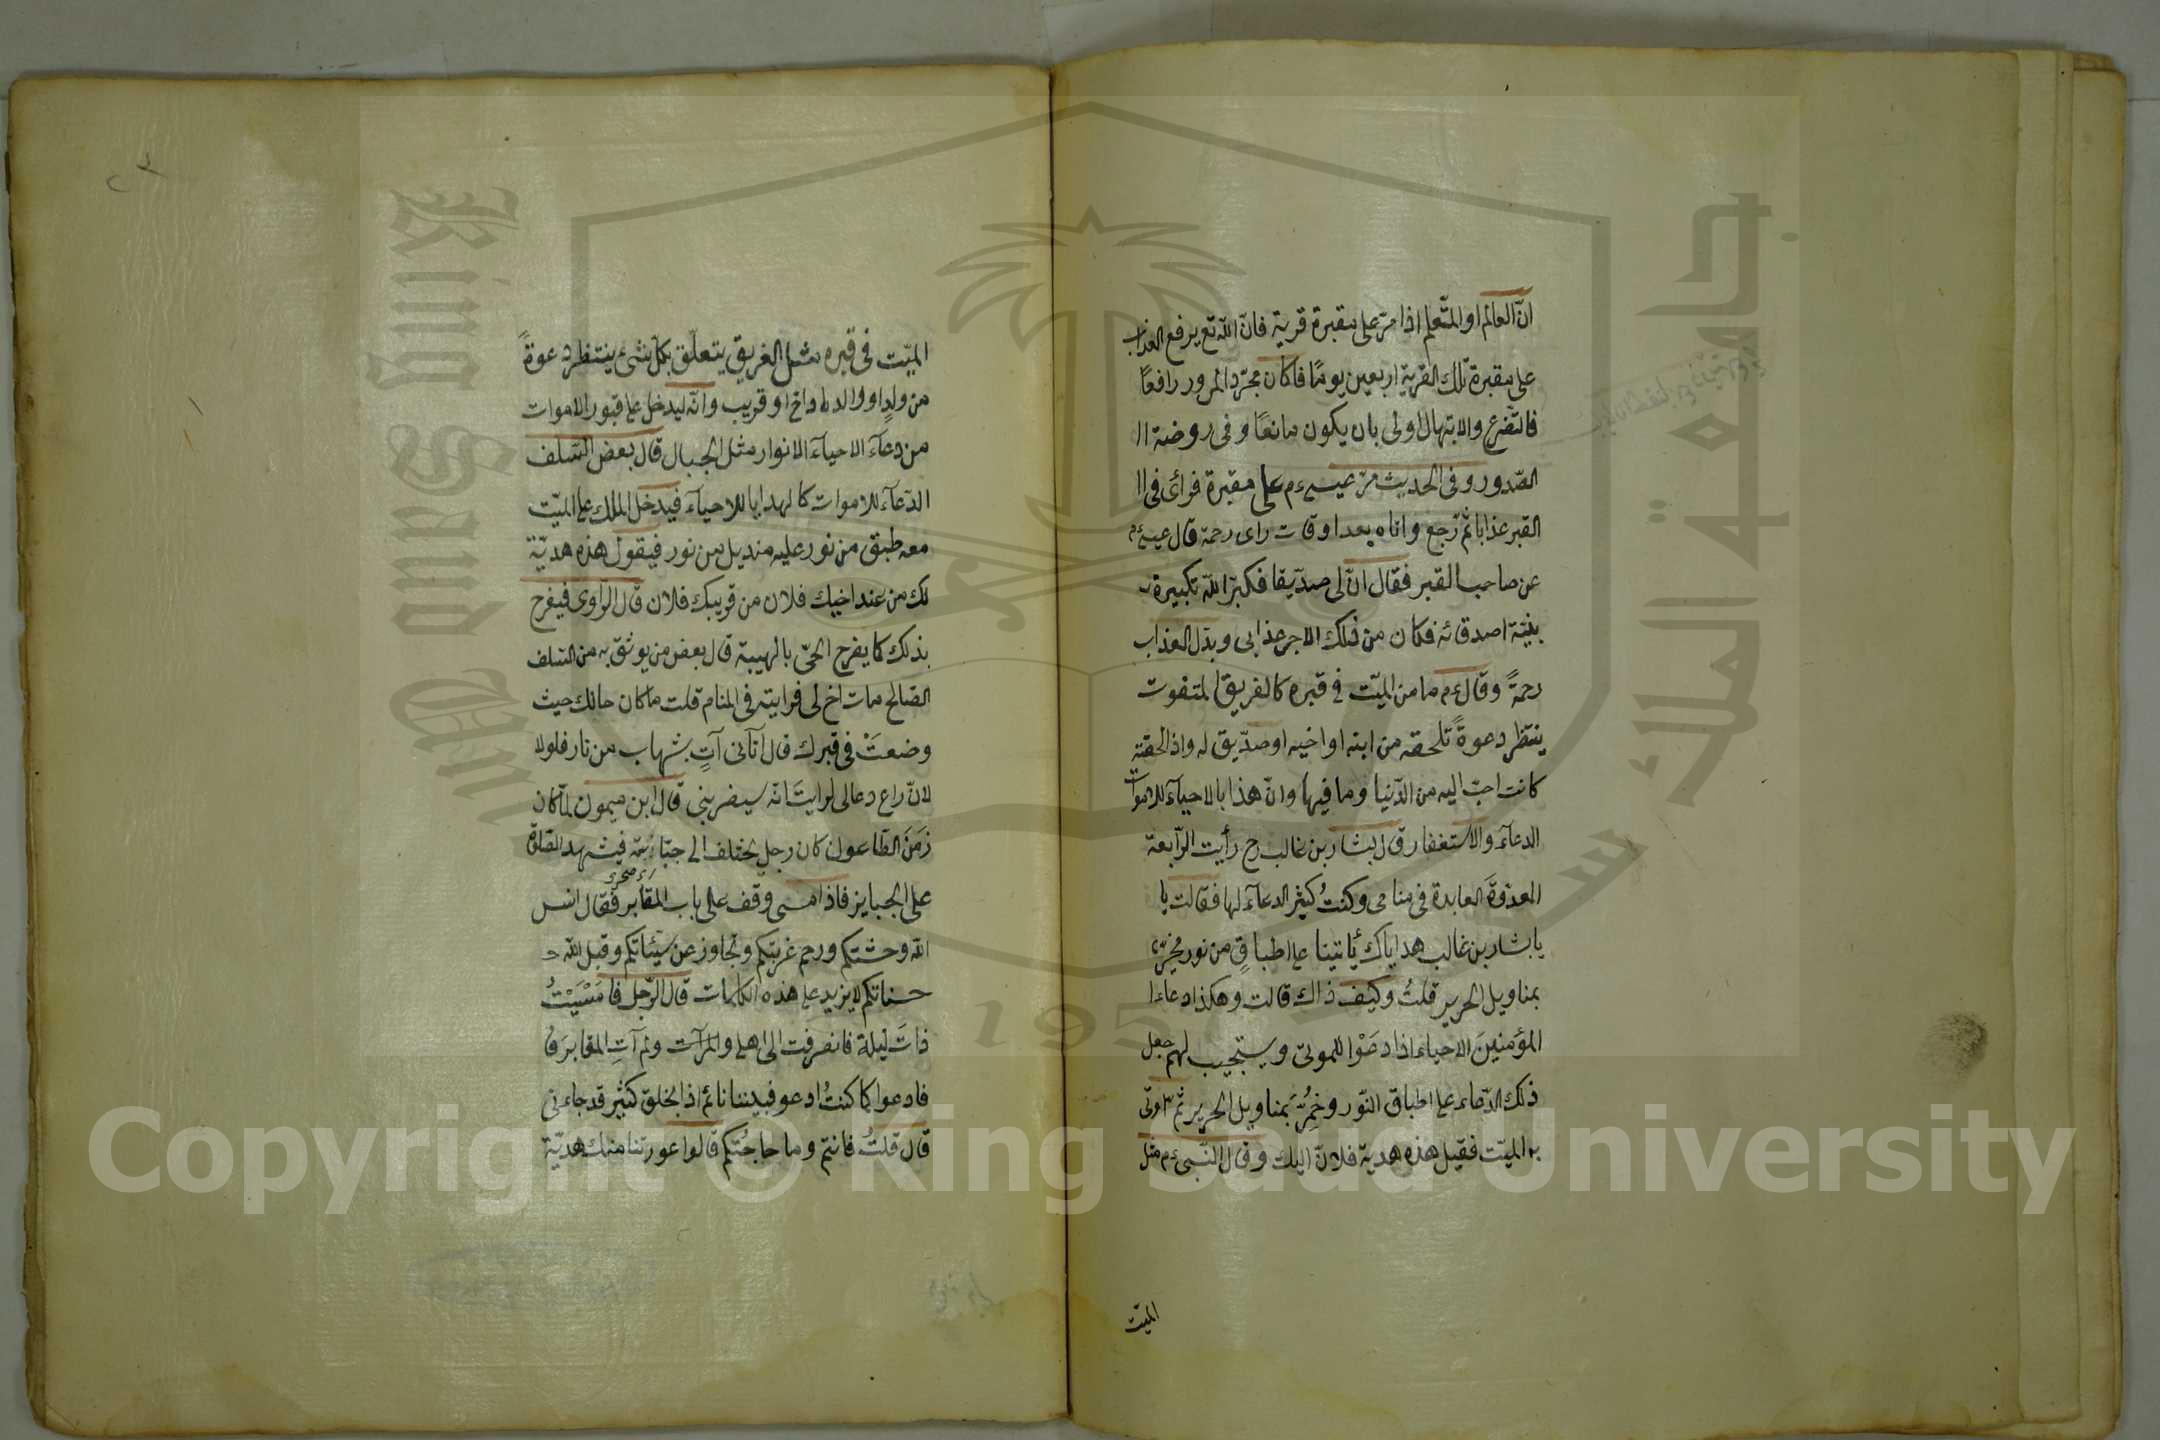 انّ العالم او المتعلم اذا مرّ على مقبرة قرية فانّ اللّه تع يرفع العذاب
على مقبرة تلك القرية اربعين يومًا فاكان مجرّد المرور رافعًا
فالتّضرع والابتهال اولى بان يكون مانعًا وفى روضة ا
الصّدور وفى الحديث مرّ عيسى ءم على مقبرة فرأى فى ا
القبر عذابا ثمّ رجع واتاه بعد اوقات راى رحمة قال عيسى ءم
عن صاحب القبر فقال انّ لى صدّيقا فكبّر اللّه تكبيرة
بنيّة اصدقائه فكان من ذلك الاجر عذابى وبدّل العذاب
رحمةً وقال ءم ما من الميّت فى قبره كالغريق المتغوث
ينتظر دعوةً تلحقه من ابنه او اخيه او صدّيق له واذا لحقته
كانت احبّ اليه من الدّنيا وما فيها وانّ هذا بالاحياء للاموات
الدعاء والاستغفار قال بشار بن غالب رح رأيت الرّابعة
العذوةَ العابدة فى منامى وكنتُ كثير الدعاء لها فقالت يا
يا بشار بن غالب هداياك يأتينا على اطباقٍ من نور مخمّر
بمناويل الحرير قلتُ وكيف ذاك قالت وهكذا دعاء ا
المؤمنينَ الاحياء اذا دعَوْا للموتى ويستجيب لهم جعل
ذلك الدّعاء على اطباق النّور وخمِّرَ بمناويل الحرير ثمّ اوتى
به الميّت فقيل هذه هدية فلان اليك وقال النّبى ءم مثل
الميّت
الميّت فى قبره مثل الغريق يتعلّق بكلّ شىء ينتظر دعوةً
من ولدٍ او والد او اخ او قريب وانّه ليدخل على قبور الاموات
من دعاء الاحياء الانوار مثل الجبال قال بعض السّلف
الدّعاء للاموات كالهدايا للاحياء فيدخل الملك على الميّت
معه طبق من نور عليه منديل من نور فيقول هذه هديّة
لك من عند اخيك فلان من قريبك فلان قال الرّاوى فيفرح
بذلك كما يفرح الحىّ بالهيبة قال بعض من يوثق به من السّلف
الصّالح مات اخ لى فرايته فى المنام قلت ما كان حالك حيث
وضعتَ فى قبرك قال اتانى آتٍ بشهاب من نار فلولا
لانّ راع دعا لى لرايت انّه سيضربنى قال ابن ميمون لمّا كان
زمَنَ الطّاعون كان رجل يختلف الى جبّانة فيشهد الصّلاة
على الجبايز فاذا امسى وقف على باب المقابر فقال انس
اللّه وحشتكم ورحم غربتكم وتجاوز عن سيّئاتكم وقبل اللّه
حسناتكم لا يزيد على هذه الكلمات قال الرّجل فامْسَيْتُ
ذاتَ ليلة فانصرفت الى اهلى ولم آتِ المقابرَ
فادعوا كما كنتُ ادعو فبينما انا نائم اذا بخلق كثير قد جاءنى
قال قلتُ فانتم وما حاجتُكم قالوا عوّدتنا منك هديّة
King Saud University
جامعة الملك سعود
1957
Copyright © King Saud University